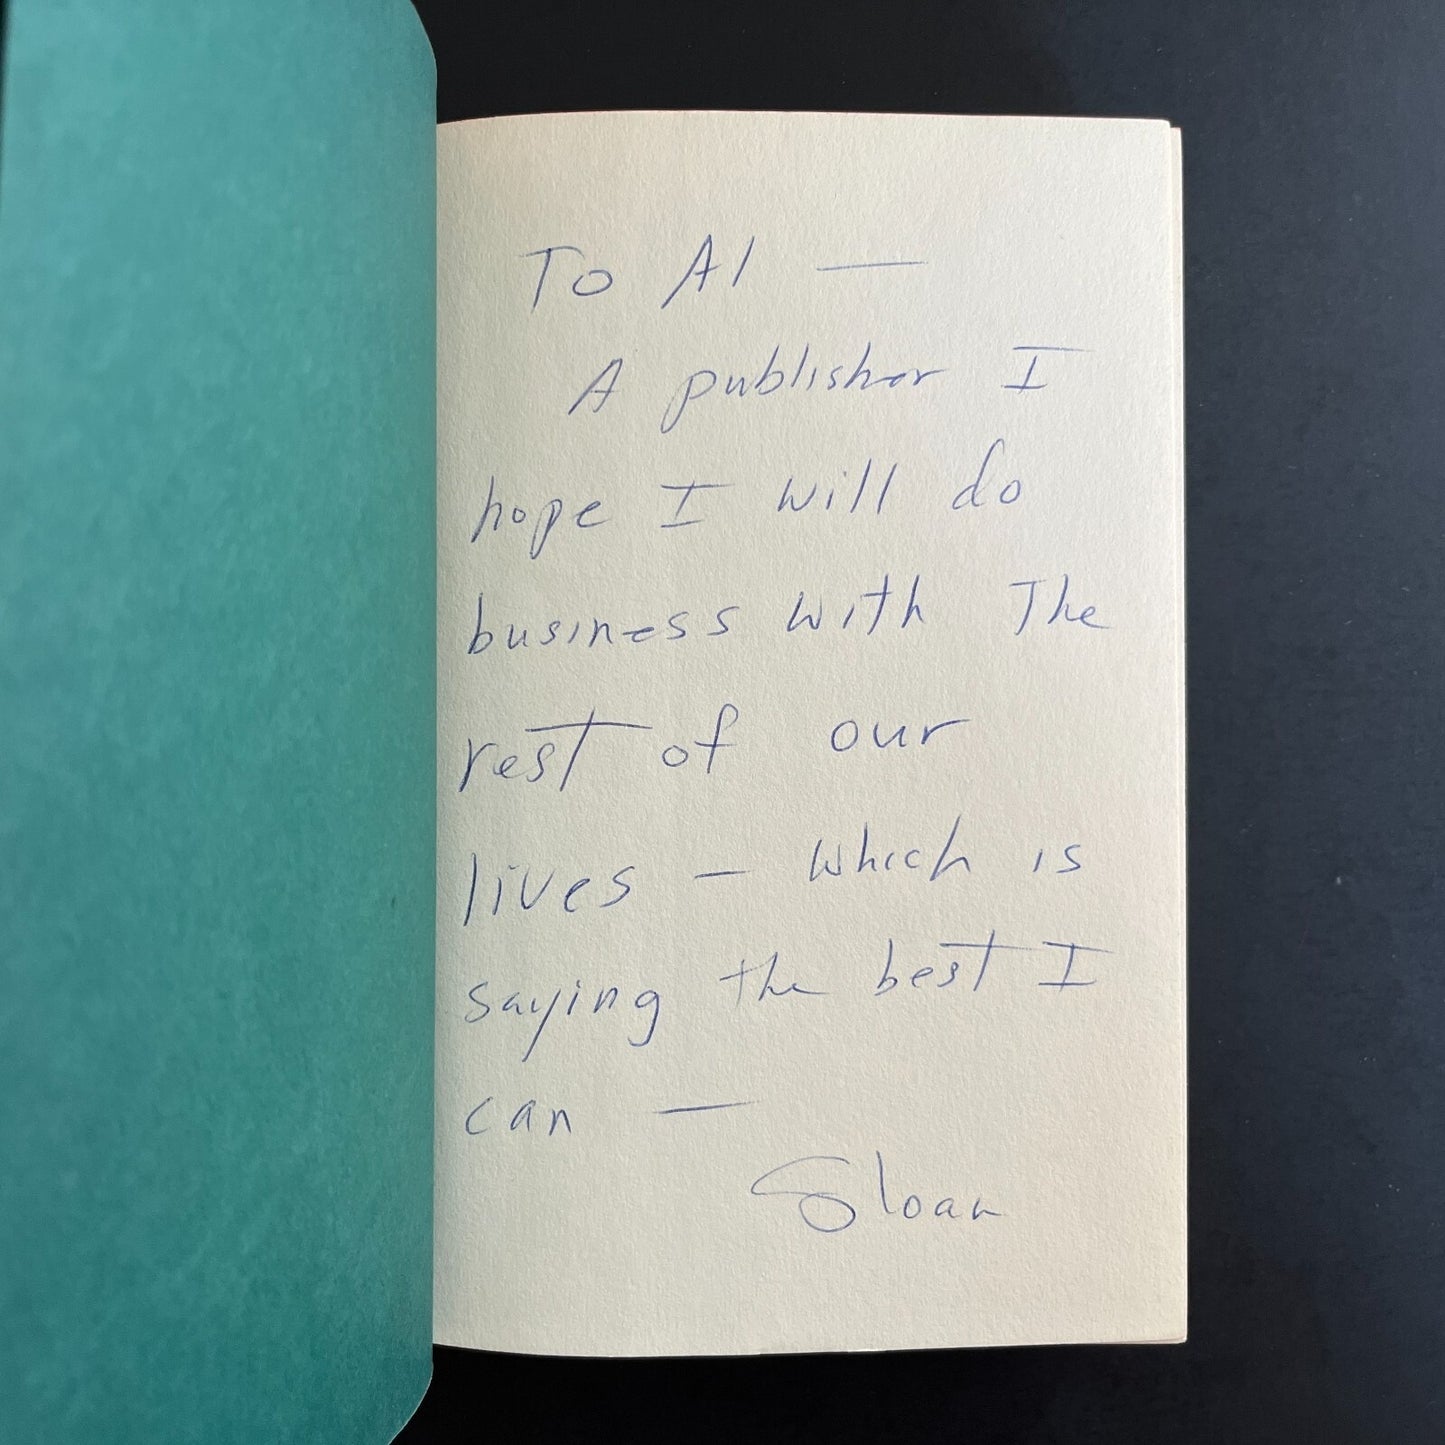 To Al —
A publisher I
hope I will do
business with The
rest of our
lives — which is
saying the best I
can —
Sloan